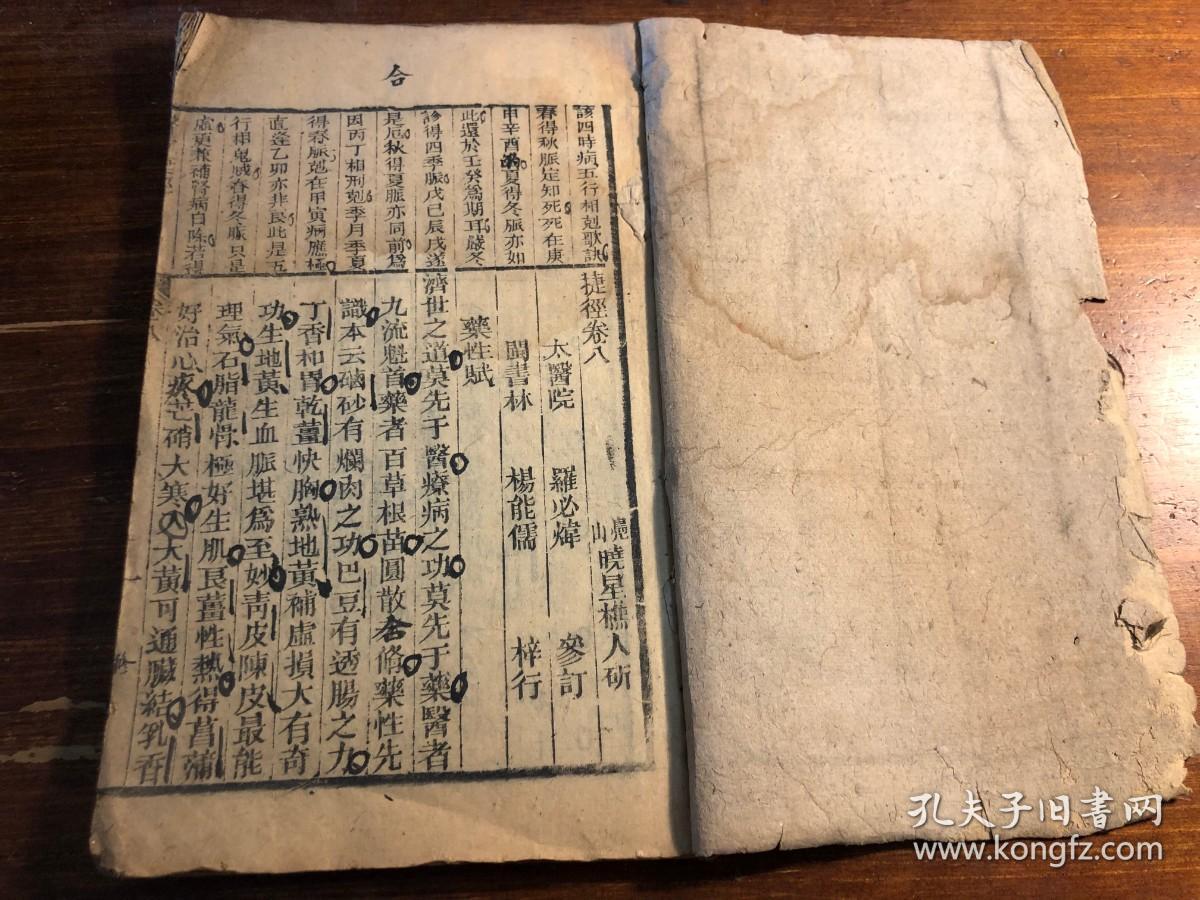 合
診四時病五行相剋歌訣
春得秋脈定知死死在庚
申辛酉的夏得冬脈亦如
此還於壬癸為期耳嚴冬
診得四季脈戊己辰戌遂
是厄秋得夏脈亦同前為
因丙丁相刑剋季月季夏
得春脈剋在甲寅病應極
直逢乙卯亦非良此是五
行相鬼賊春得冬脈只是
虛更兼補腎病自除若得
捷徑卷八
曉星樵人 研
太醫院 羅必煒 參訂
閩書林 楊能儒 梓行
藥性賦
濟世之道莫先于醫療病之功莫先于藥醫者
九流魁首藥者百草根苗圓散合脩藥性先
識本云硇砂有爛肉之功巴豆有透腸之力
丁香和胃乾薑快胸熟地黃補虛損大有奇
功生地黃生血脈堪為至妙青皮陳皮最能
理氣石脂龍骨極好生肌良薑性熱得菖蒲
好治心疼芒硝大寒入大黃可通臟結乳香
孔夫子旧書网
www.kongfz.com